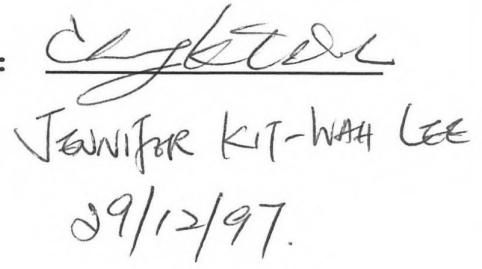 :
JENNIFER KIT-WAH LEE
29/12/97.